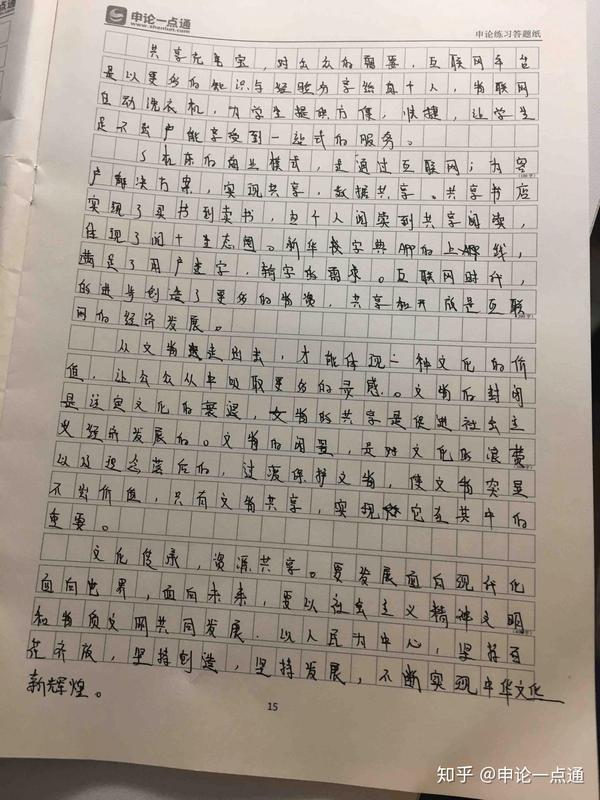 申论一点通
www.shenlun.com
申论练习答题纸
共享充电宝,对公众的需要,互联网平台
是以更多的知识与经验分享给每个人,物联网
自动洗衣机,为学生提供方便,快捷,让学生
足不出户能享受到一站式的服务。
的商业模式,是通过互联网;为客
户解决方案,实现共享,数据共享。共享书店
实现了买书到卖书,由个人阅读到共享阅读,
体现了阅生态圈。新华字典APP的上线,
满足了用户查字,新字的需求。互联网时代,
的进步创造了更多的物资,共享和开放是互联
网的经济发展。
从文物走出去,才能体现一种文化的价
值,让公众从中吸取更多的灵感。文物后封闭
是注定文化的衰退,文物的共享是促进社会主
义经济发展的。文物的闲置,是对文化的浪费
以及理念落后的,过度保护文物,使文物突显
不出价值,只有文物共享,实现它在其中的
重要。
文化传承,资源共享。要发展面向现代化
面向世界,面向未来,要以社会主义精神文明
和物质文明共同发展.以人民为中心,坚持百
花齐放,坚持创造,坚持发展,不断实现中华文化
新辉煌。
15
知乎 @申论一点通